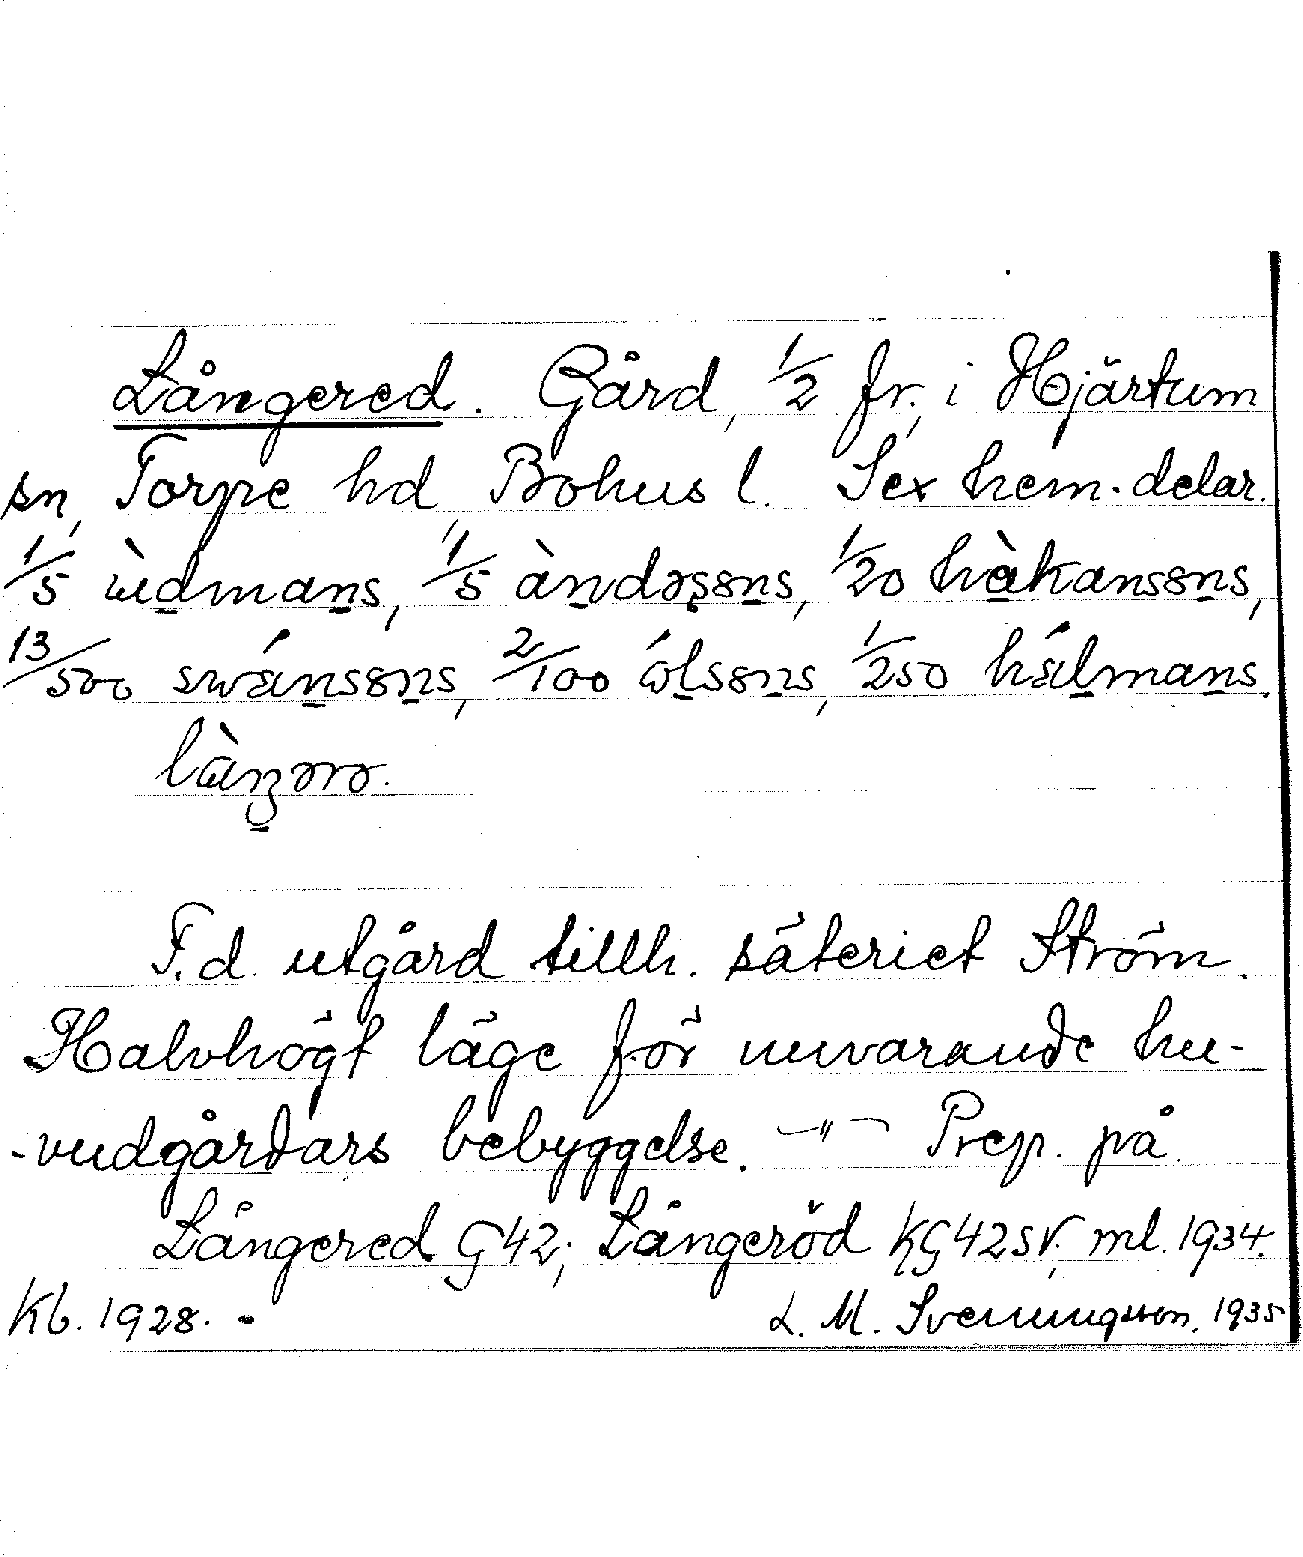 Långered. Gård, 1/2 fr, i Hjärtum
sn, Torpe hd, Bohus l. Sex hem. delar.
1/5 ùdmans, 1/5 àndəsons, 1/20 hàkansons,
13/500 swánsons, 2/100 ólsons, 1/250 hálmans.
làŋərə.
F.d. utgård tillh. säteriet Ström.
Halvhögt läge för nuvarande hu-
-vudgårdars bebyggelse. —"— Prep. på
Långered G 42; Långeröd KG 42 SV, ml. 1934.
Kb. 1928. -
L. M. Svenungsson, 1935